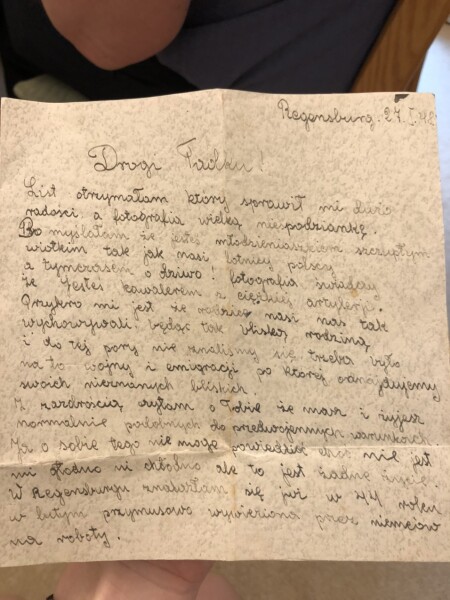 Regensburg. 27. I. 48
Drogi Tadku!
List otrzymałam który sprawił mi dużo
radości a fotografia wielką niespodziankę.
Bo myślałam że jesteś młodzieniaszkiem szczupłym
wiotkim tak jak nasi lotnicy polscy
a tymczasem o dziwo! fotografia świadczy
że jesteś kawalerem z ciężkiej artylerji.
Przykro mi jest że rodzice nasi nas tak
wychowywali będąc tak bliską rodziną
i do tej pory nie znaliśmy się, trzeba było
na to wojny i emigracji po której odnajdujemy
swoich nieznanych bliskich
Z zazdrością czytam o Tobie że masz i żyjesz
normalnie podobnych do przedwojennych warunkach.
Ja o sobie tego nie mogę powiedzieć choć nie jest
mi głodno ni chłodno ale to jest żadne życie.
W Regensburgu znalazłam się już w 44 roku
w lutym przymusowo wywieziona przez niemców
na roboty.